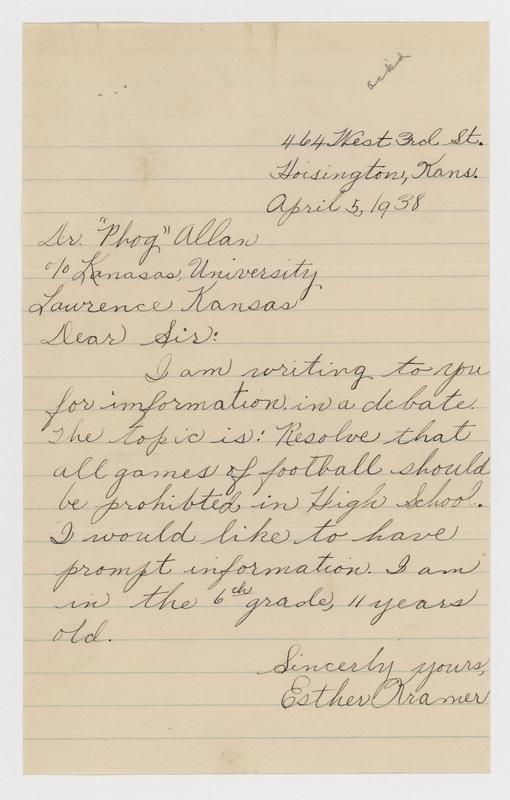 ack'd
464 West 3rd St.
Hoisington, Kans.
April 5, 1938
Dr. "Phog" Allan
c/o Kanasas, University
Lawrence Kansas
Dear Sir:
I am writing to you
for imformation in a debate.
The topic is: Resolve that
all games of football should
be prohibted in High School.
I would like to have
prompt information. I am
in the 6th grade, 11 years
old.
Sincerly yours,
Esther Kramer